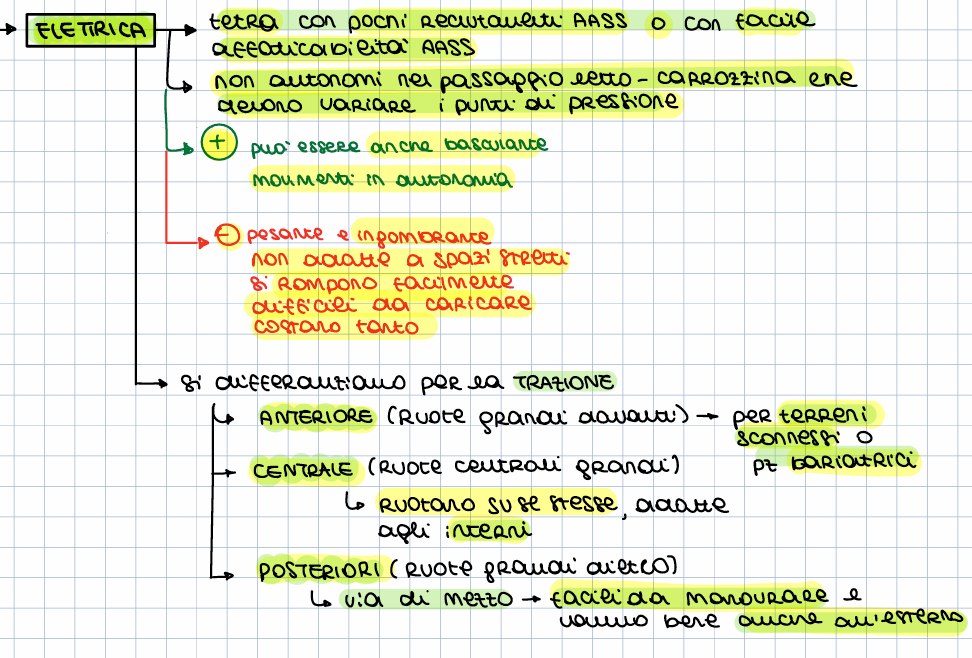 ELETTRICA
tetra con pochi reclutamenti AASS o con facile
affaticabilità AASS
non autonomi nel passaggio letto - carrozzina che
devono variare i punti di pressione
+ può essere anche basculante
movimenti in autonomia
- pesante e ingombrante
non adatte a spazi stretti
si rompono facilmente
difficili da caricare
costano tanto
si differenziano per la TRAZIONE
ANTERIORE (ruote grandi davanti) → per terreni
sconnessi o
pz bariatrici
CENTRALE (ruote centrali grandi)
ruotano su se stesse, adatte
agli interni
POSTERIORI (ruote grandi dietro)
via di mezzo → facili da manovrare e
vanno bene anche all'esterno